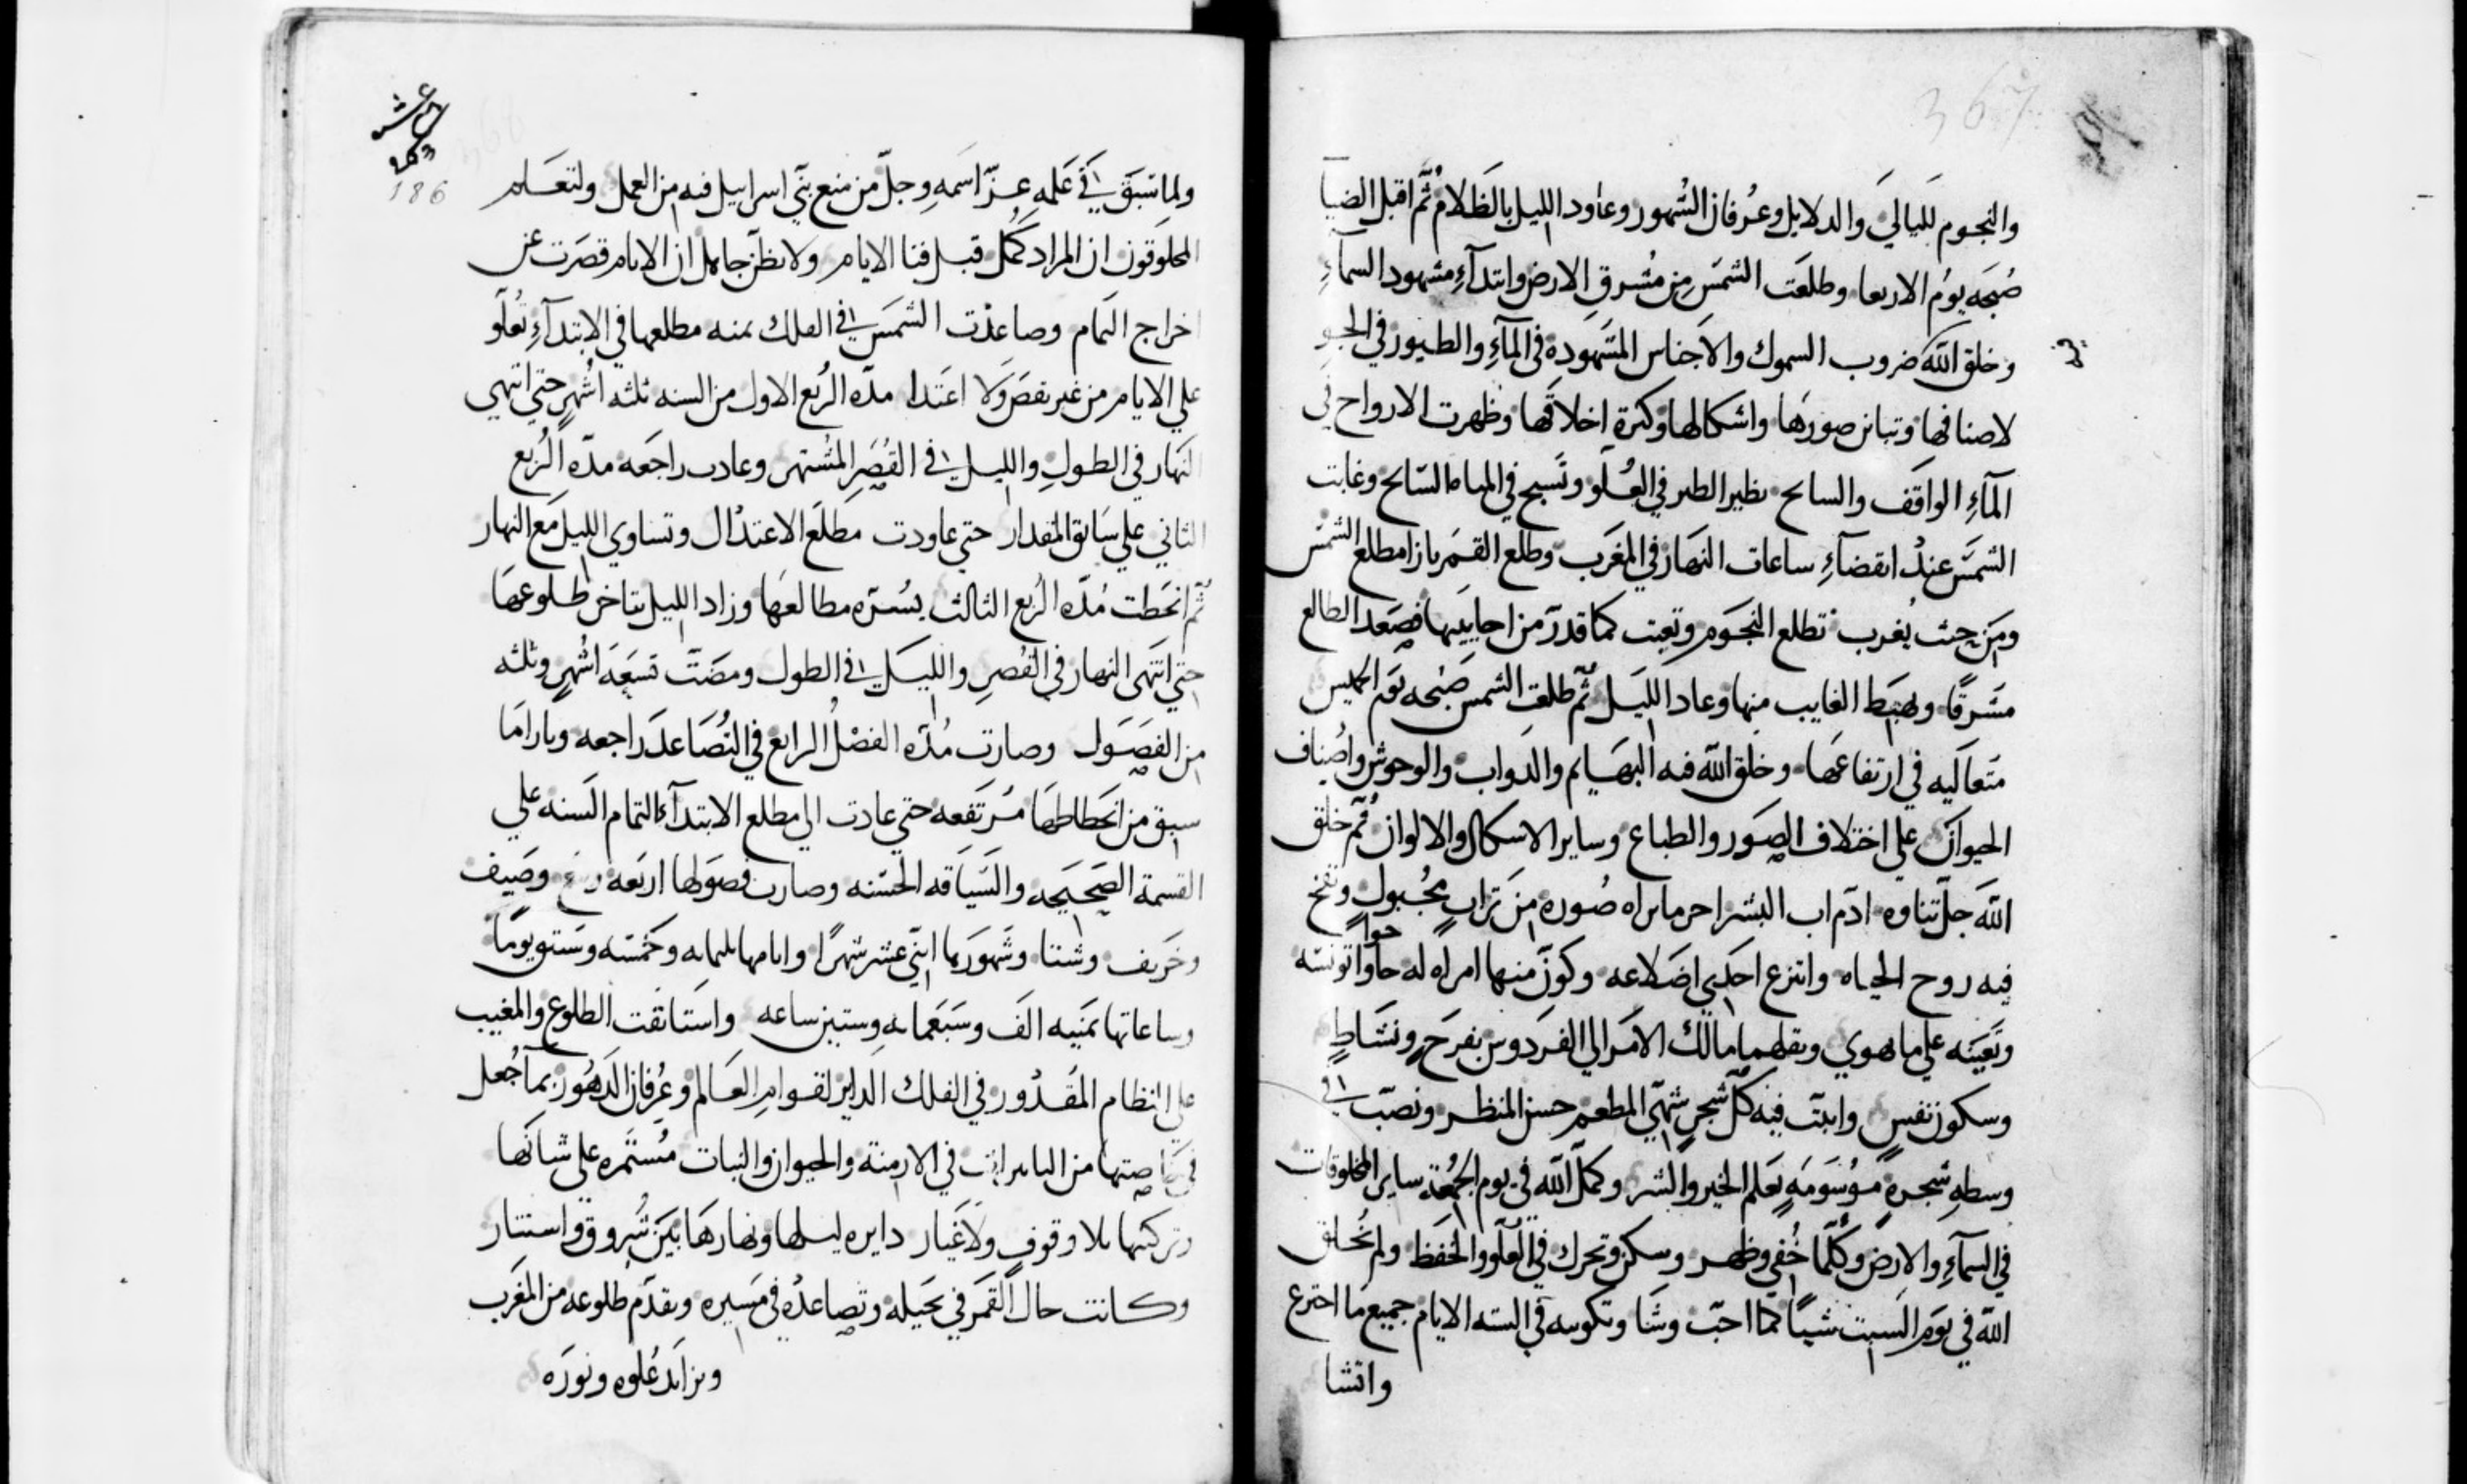 367
والنجوم لليالي والدلايل وعرفان الشهور وعاود الليل بالظلام ثم اقبل الضيا
صبحه يوم الاربعا وطلعت الشمس من مشرق الارض وابتدآء مشهود السمآء
وخلق الله ضروب السموك والاجناس المشهودة في المآء والطيور في الجو
لاصنافها وتباين صورها واشكالها وكثرة اخلاقها وظهرت الارواح في
المآء الواقف والسايح نظير الطير في العلو وتسبح في المياه السايح وغابت
الشمس عند انقضآء ساعات النهار في المغرب وطلع القمر بازا مطلع الشمس
ومن حيث يغرب تطلع النجوم وتغيب كما قدر من احايينها فصعد الطالع
مشرقًا وهبط الغايب منها وعاد الليل ثم طلعت الشمس صبحه يوم الخميس
متعاليه في ارتفاعها وخلق الله فيه البهايم والدواب والوحوش واصناف
الحيوان علي اختلاف الصور والطباع وساير الاشكال والالوان ثم خلق
الله جل ثناوه ادم اب البشر اخر ما براه صوره من تراب مجبول ونفخ
فيه روح الحياه وانتزع احدي اضلاعه وكون منها امراه له حاوا تونسه
حوا
وتعينه علي ما يهوي ونقلهما مالك الامر الي الفردوس بفرح ونشاط
وسكون نفس وانبت فيه كل شجر شهي المطعم حسن المنظر ونصب في
وسطه شجرة موسومه بعلم الخير والشر وكمل الله في يوم الجمعة ساير المخلوقات
في السمآء والارض وكلما خفي وظهر وسكن وتحرك في العلو والخفظ ولم يخلق
الله في يوم السبت شيئًا كما احب وشا وتكوينه في الستة الايام جميع ما اخترع
وانشا
186
ولما سبق في علمه عز اسمه وجل من منع بني اسراييل فيه من العمل ولتعلم
المخلوقون ان المراد كمل قبل فنا الايام ولا يظن جاهل ان الايام قصرت عن
اخراج التمام وصاعدت الشمس في الفلك يمنه مطلعها في الابتدآء تعلو
علي الايام من غير نقص ولا اعتدا مده الربع الاول من السنه ثلثه اشهر حتي انتهي
النهار في الطول والليل في القصر المشتهر وعادت راجعه مده الربع
الثاني علي سابق المقدار حتي عاودت مطلع الاعتدال وتساوي الليل مع النهار
ثم انحطت مده الربع الثالث يسره مطالعها وزاد الليل بتاخر طلوعها
حتي انتهى النهار في القصر والليل في الطول ومضت تسعه اشهر وثلثه
من الفصول وصارت مده الفصل الرابع في التصاعد راجعه وبازا ما
سبق من انحطاطها مرتفعه حتي عادت الي مطلع الابتدآء لتمام السنه علي
القسمة الصحيحه والسياقه الحسنه وصارت فصولها اربعه ربيع وصيف
وخريف وشتا وشهورها اثني عشر شهرًا وايامها ثلثمايه وخمسه وستون يومًا
وساعاتها ثمنيه الف وسبعمايه وستين ساعه واستانفت الطلوع والمغيب
علي النظام المقدور في الفلك الداير لقوام العالم وعرفان الدهور بما جعل
في خاصتها من التاثيرات في الازمنة والحيوان والنبات مستمره على شانها
وتركتها بلا وقوف ولا غيار دايره ليلها ونهارها بين شروق واستتار
وكانت حال القمر في تحيله وتصاعده في مسيره وتقدم طلوعه من المغرب
وتزايد علوه ونوره